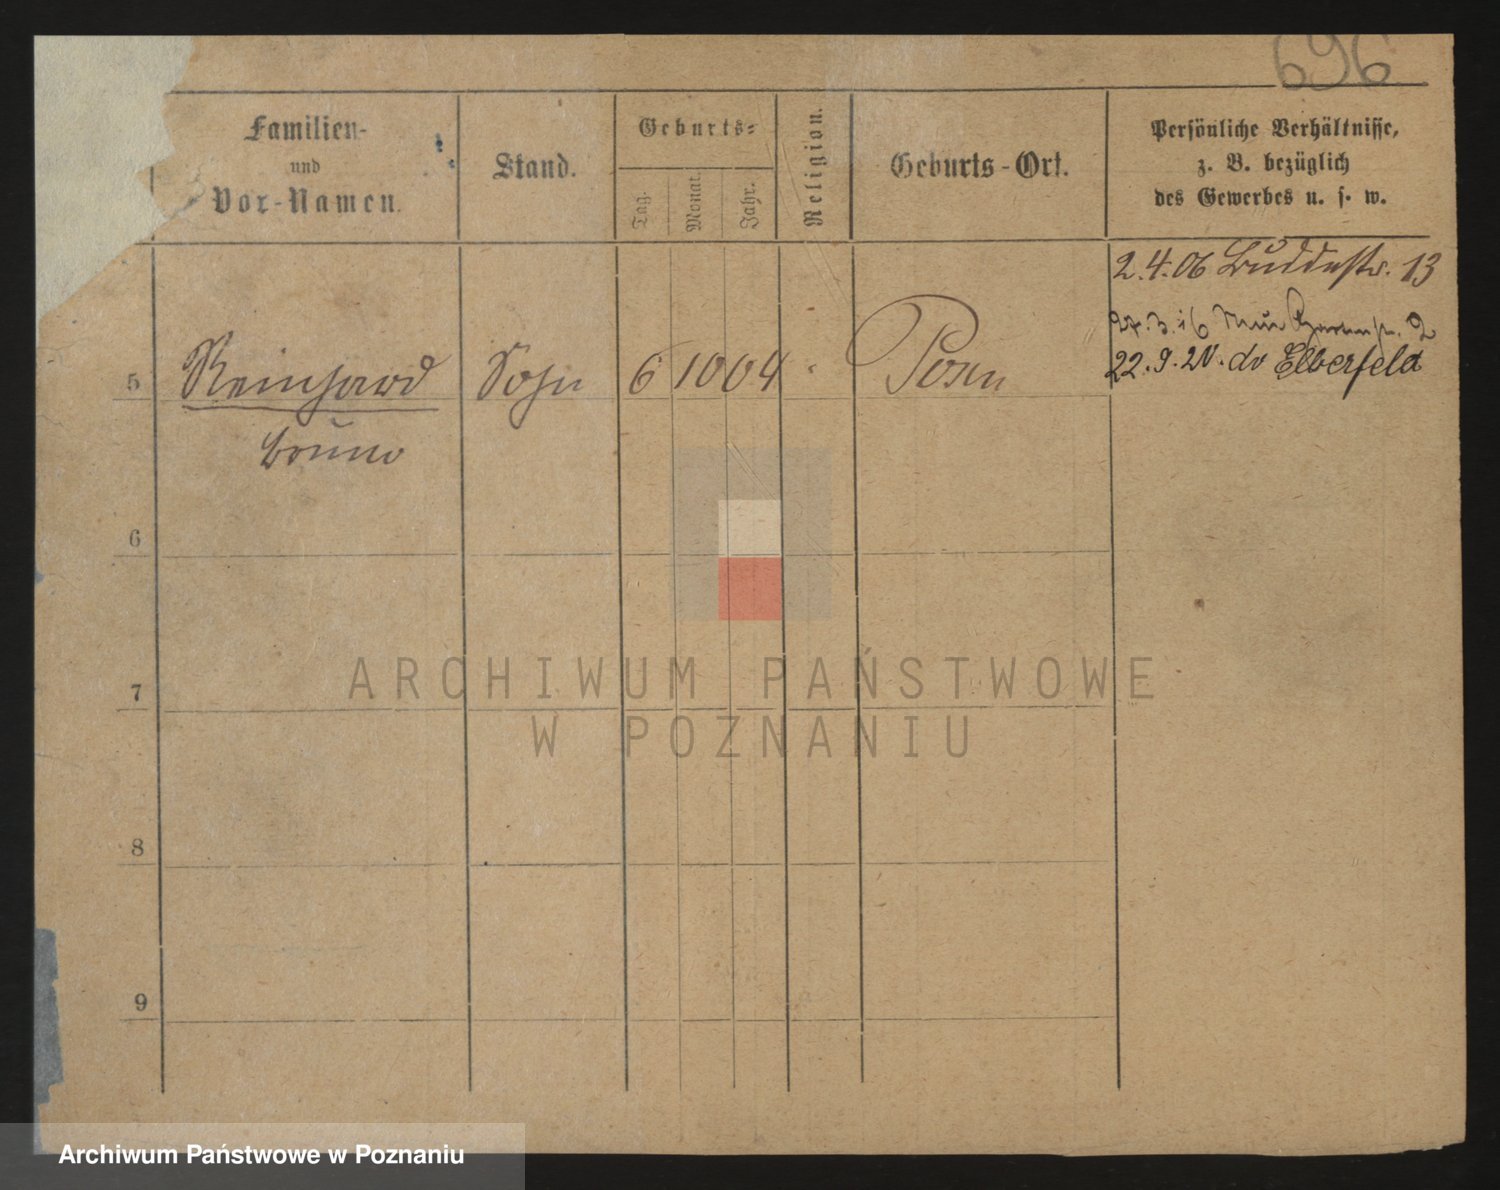 696
Familien-
und
Vor-Namen.
Stand.
Geburts-
Tag.
Monat.
Jahr.
Religion.
Geburts-Ort.
Persönliche Verhältnisse,
z. B. bezüglich
des Gewerbes u. s. w.
2.4.06 Buddestr. 13
27.3.16 Neue Gartenstr. 2
5 Reinhard Sohn 6 10 04 " Posen 22.9.20. do Elberfeld
Bruno
6
7
8
9
ARCHIWUM PAŃSTWOWE
W POZNANIU
Archiwum Państwowe w Poznaniu